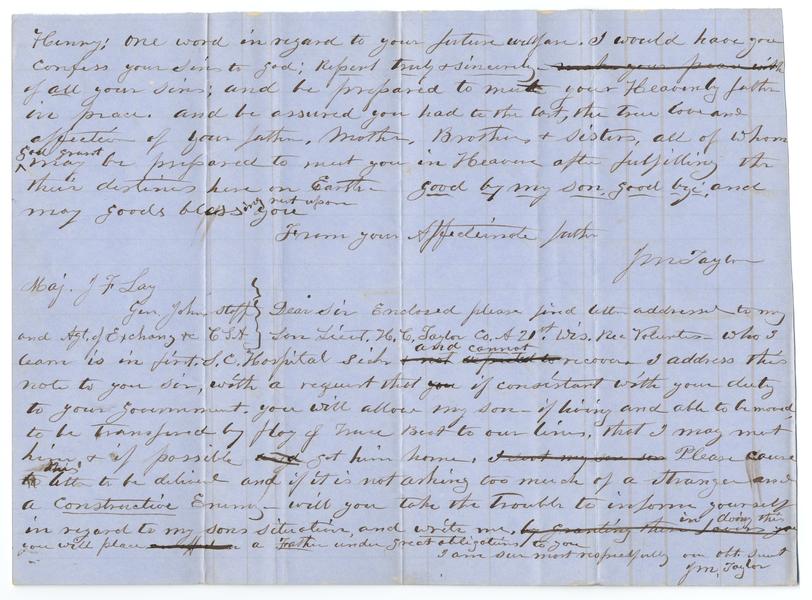 Henry; one word in regard to your future welfare. I would have you
Confess your sins to God; Repent truly & sincerely make your peace with
of all your sins; and be prepared to meet your Heavenly father
in peace. and be assured you had to the last, the true love and
affection of your father, Mother, Brothers & Sisters, all of whom
God grant
may be prepared to meet you in Heaven after fulfilling the
their destinies here on Earth good by my son, good bye; and
may gods blessing rest upon you
From your Affectionate father
JM Taylor
Maj. J F Lay
Gen. Johns staff
and Agt. of Exchang &c C.S.A
Dear Sir Enclosed please find letter addressed to my
Son Lieut. H. C. Taylor Co. A 21st Wis. Reg Volunteers - who I
and cannot
learn is in first S.C. Hospital sick recover I address this
note to you sir, with a request that you if consistant with your duty
to your government. you will allow my son - if living and able to be moved
to be transfered by flag of Truce Boat to our lines, that I may meet
him & if possible and get him home. Please cause
this
letter to be delivered and if it is not asking too much of a stranger and
a Constructive Enemy - will you take the Trouble to inform yourself
in regard to my sons situation and write me, by granting these favors you
in doing this
you will place a Father under great obligations to you
I am Sir most respectfully our obt Servt
JM, Taylor